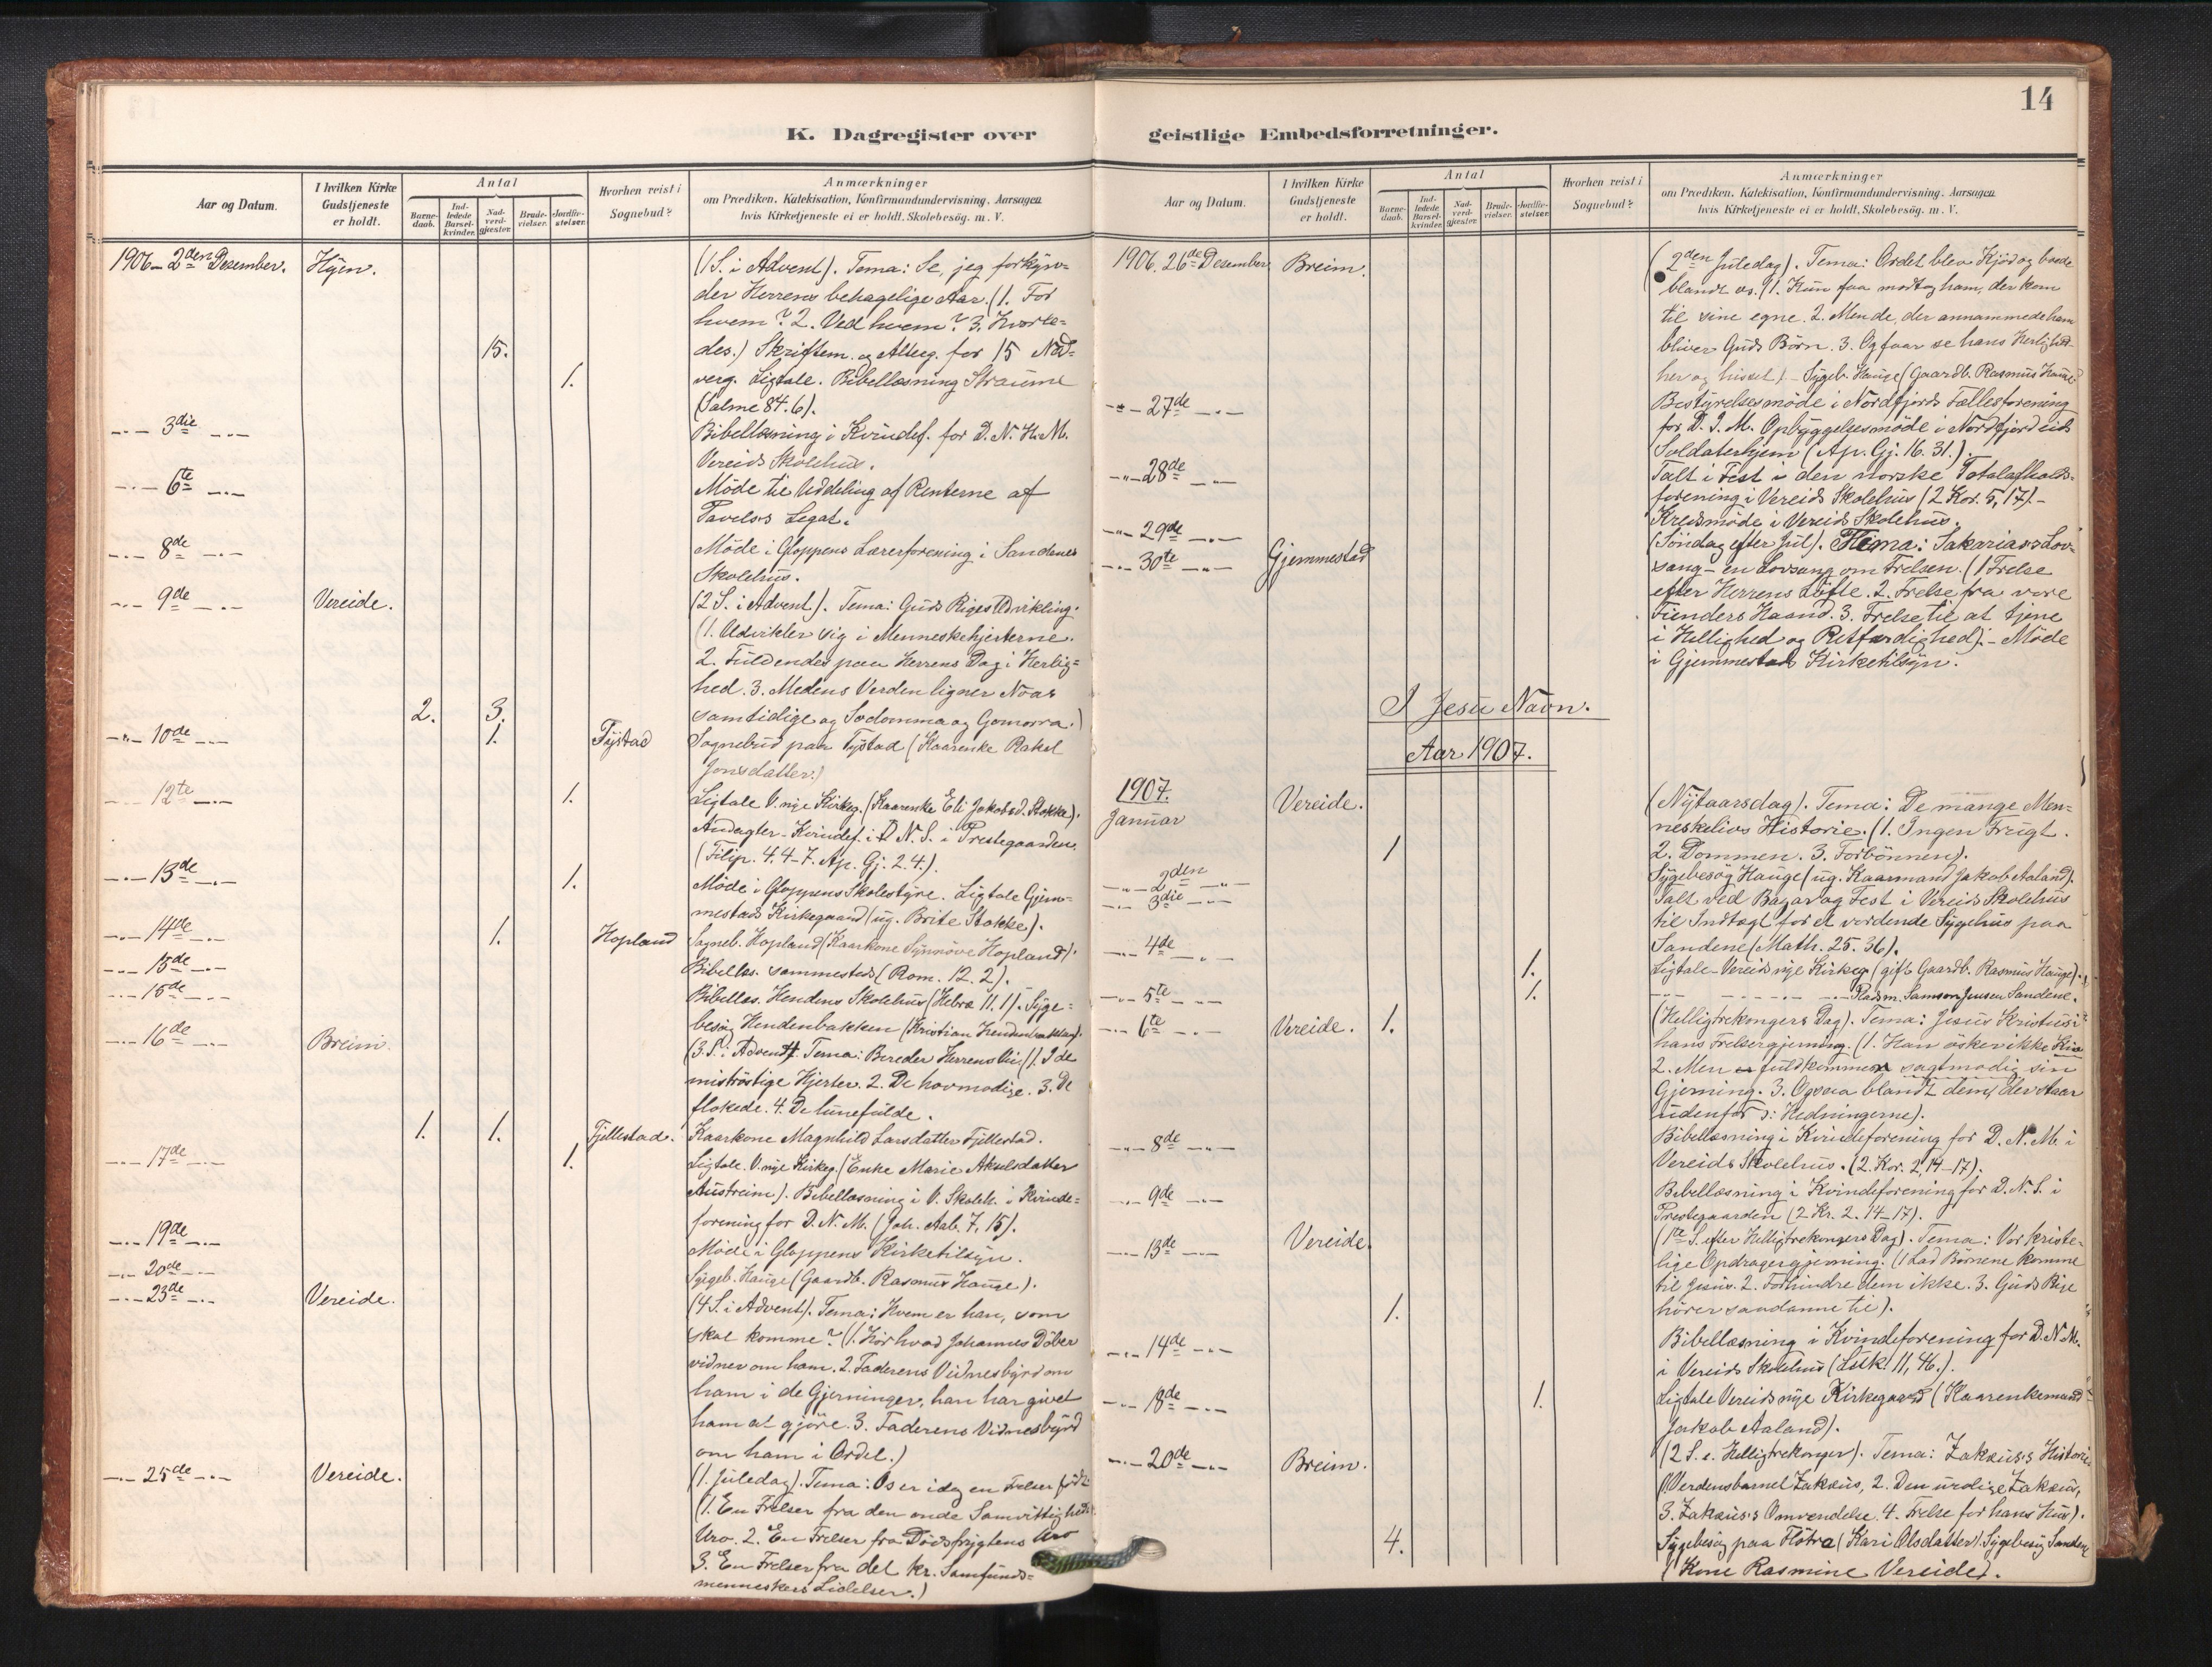 14
K. Dagregister over geistlige Embedsforretninger.
Aar og Datum.
I hvilken Kirke Gudstjeneste er holdt.
Antal
Barne-daab.
Ind-ledede Barsel-kvinder.
Nad-verd-gjæster.
Brude-vielser.
Jordfæ-stelser.
Hvorhen reist i Sognebud?
Anmærkninger
om Prædiken, Katekisation, Konfirmandundervisning, Aarsagen
hvis Kirketjeneste ei er holdt, Skolebesög. m. V.
1906 - 2den Desember. Hyen. (1 S. i Advent). Tema: Se, jeg forkyn=
der Herrens behagelige Aar. (1. For
hvem? 2. Ved hvem? 3. Hvorle=
15. des.) Skriftem. og Alterg. for 15 Nad=
1. verg. Ligtale. Bibellæsning Straume
(Salme 84.6).
-"- 3die -"- Bibellæsning i Kvindef. for D. N. H. M.
Vereids Skolehus.
-"- 6te -"- Möde til Uddeling af Renterne af
Pavels's Legat.
-"- 8de -"- Möde i Gloppens Lærerforening i Sandenes
Skolehus.
-"- 9de -"- Vereide. (2 S. i Advent). Tema: Guds Riges Udvikling.
(1. Udvikler sig i Menneskehjerterne.
2. Fuldendes paa Herrens Dag i Herlig=
hed. 3. Medens Verden ligner Noas
2. 3. samtidige og Sodomma og Gomorra.)
-"- 10de -"- 1. Tystad Sognebud paa Tystad (Kaarenke Rakel
Jonsdatter.)
-"- 12te -"- 1. Ligtale V. nye Kirkeg. (Kaarenke Eli Jakobsd. Stokke).
Andagter - Kvindef. i D. N. S. i Prestegaarden.
(Filip. 4. 4-7. Ap. Gj. 2. 4.).
-"- 13de -"- 1. Möde i Gloppens Skolestyre. Ligtale Gjem=
mestads Kirkegaard (ug. Brite Stokke).
-"- 14de -"- 1. Hopland Sogneb. Hopland (Kaarkone Synnöve Hopland).
-"- 15de -"- Bibellæs. sammesteds (Rom. 12. 2).
-"- 15de -"- Bibellæs. Hendens Skolehus (Hebræ 11. 1). Syge=
besög Hendenbakken (Kristian Hendenbakken).
-"- 16de -"- Breim. (3. S. i Advent). Tema: Bereder Herrens Vei (1. I de
miströstige Hjerter. 2. De hovmodige. 3. De
flokede. 4. De lunefulde.
1. 1. Fjellestad. Kaarkone Magnhild Larsdatter Fjellestad.
-"- 17de -"- 1. Ligtale. V. nye Kirkeg. (Enke Marie Akselsdatter
Austreim). Bibellæsning i V. Skoleh. i Kvinde=
forening for D. N. M. (Joh. Aab. 7, 15).
-"- 19de -"- Möde i Gloppens Kirketilsyn.
-"- 20de -"- Sygeb. Hauge (Gaardb. Rasmus Hauge).
-"- 23de -"- Vereide. (4 S. i Advent). Tema: Hvem er han, som
skal komme? (1. Hör hvad Johannes Döber
vidner om ham. 2. Faderens Vidnesbyrd om
ham i de Gjerninger, han har givet
ham at gjöre. 3. Faderens Vidnesbyrd
om ham i Ordet.)
-"- 25de -"- Vereide. (1. Juledag). Tema: Os er idag en Frelser född.
(1. En Frelser fra den onde Samvittigheds
Uro. 2. En Frelser fra Dödsfrygtens Uro
3. En Frelser fra det kr. Samfunds=
menneskers Lidelser.)
Aar og Datum.
I hvilken Kirke Gudstjeneste er holdt.
Antal
Barne-daab.
Ind-ledede Barsel-kvinder.
Nad-verd-gjæster.
Brude-vielser.
Jordfæ-stelser.
Hvorhen reist i Sognebud?
Anmærkninger
om Prædiken, Katekisation, Konfirmandundervisning, Aarsagen
hvis Kirketjeneste ei er holdt, Skolebesög. m. V.
1906. 26de Desember Breim. (2den Juledag). Tema: Ordet blev Kjöd og boede
blandt os. (1. Kun faa modtog ham, der kom
til sine egne. 2. Men de, der annammede ham
bliver Guds Börn. 3. Og faar se hans Herlighed
her og hisset). - Sygeb. Hauge (Gaardb. Rasmus Hauge)
-"- 27de -"- Bestyrelsesmöde i Nordfjords Fællesforening
for D. I. M. Opbyggelsesmöde i Nordfjordeids
Soldaterhjem (Ap. Gj. 16. 31.).
-"- 28de -"- Talt i Fest i den norske Totalafholds=
forening i Vereids Skolehus (2 Kor. 5, 17). -
-"- 29de -"- Kredsmöde i Vereids Skolehus.
-"- 30te -"- Gjemmestad (Söndag efter Jul). Tema: Sakarias's Lov=
sang - en Lovsang om Frelsen. (1 Frelse
efter Herrens Löfte. 2. Frelse fra vore
Fienders Haand. 3. Frelse til at tjene
i Hellighed og Retfærdighed). - Möde
i Gjemmestads Kirketilsyn.
I Jesu Navn.
Aar 1907.
1907. Januar Vereide. (Nytaarsdag). Tema: De mange Men=
neskelivs Historie. (1. Ingen Frugt.
1 2. Dommen. 3. Forbönnen).
-"- 2den -"- Sygebesög Hauge (ug. Kaarmand Jakob Aaland).
-"- 3die -"- Talt ved Bazar og Fest i Vereids Skolehus
til Indtægt for et vordende Sygehus paa
Sandene (Math. 25. 36).
-"- 4de -"- 1. Ligtale - Vereids nye Kirkeg. (gift Gaardb. Rasmus Hauge).
-"- 5te -"- 1. -"- Pladsm. Samson Jensen Sandene.
-"- 6te -"- Vereide. 1. (Helligtrekongers Dag). Tema: Jesus Kristus's
hans Frelsergjerning. (1. Han ösker ikke
2. Men fuldkommer sagtmodig sin
Gjerning. 3. Ogsaa blandt dem, der staar
udenfor ɔ: Hedningerne).
-"- 8de -"- Bibellæsning i Kvindeforening for D. N. M. i
Vereids Skolehus. (2. Kor. 2, 14-17).
-"- 9de -"- Bibellæsning i Kvindeforening for D. N. S. i
Prestegaarden (2 Kr. 2. 14-17).
-"- 13de -"- Vereide. (1ste S. efter Helligtrekongers Dag). Tema: Vor kriste-
lige Opdragergjerning. (1 Lad Börnene komme
til Jesus. 2. Forhindre dem ikke. 3. Guds Rige
1. hörer saadanne til).
-"- 14de -"- Bibellæsning i Kvindeforening for D. N. M.
i Vereids Skolehus (Luk. 11, 46.).
-"- 18de -"- 1. Ligtale Vereids nye Kirkegaard (Kaarenkemand
Jakob Aaland).
-"- 20de -"- Breim. (2 S. e. Helligtrekonger). Tema: Zakæus's Historie
(Verdensbarnet Zakæus, 2. Den urolige Zakæus,
3. Zakæus's Omvendelse. 4. Frelse for hans Hus).
4. Sygebesög paa Flötra (Kari Olsdatter). Sygebesög Sandene
(Kone Rasmine Vereide).